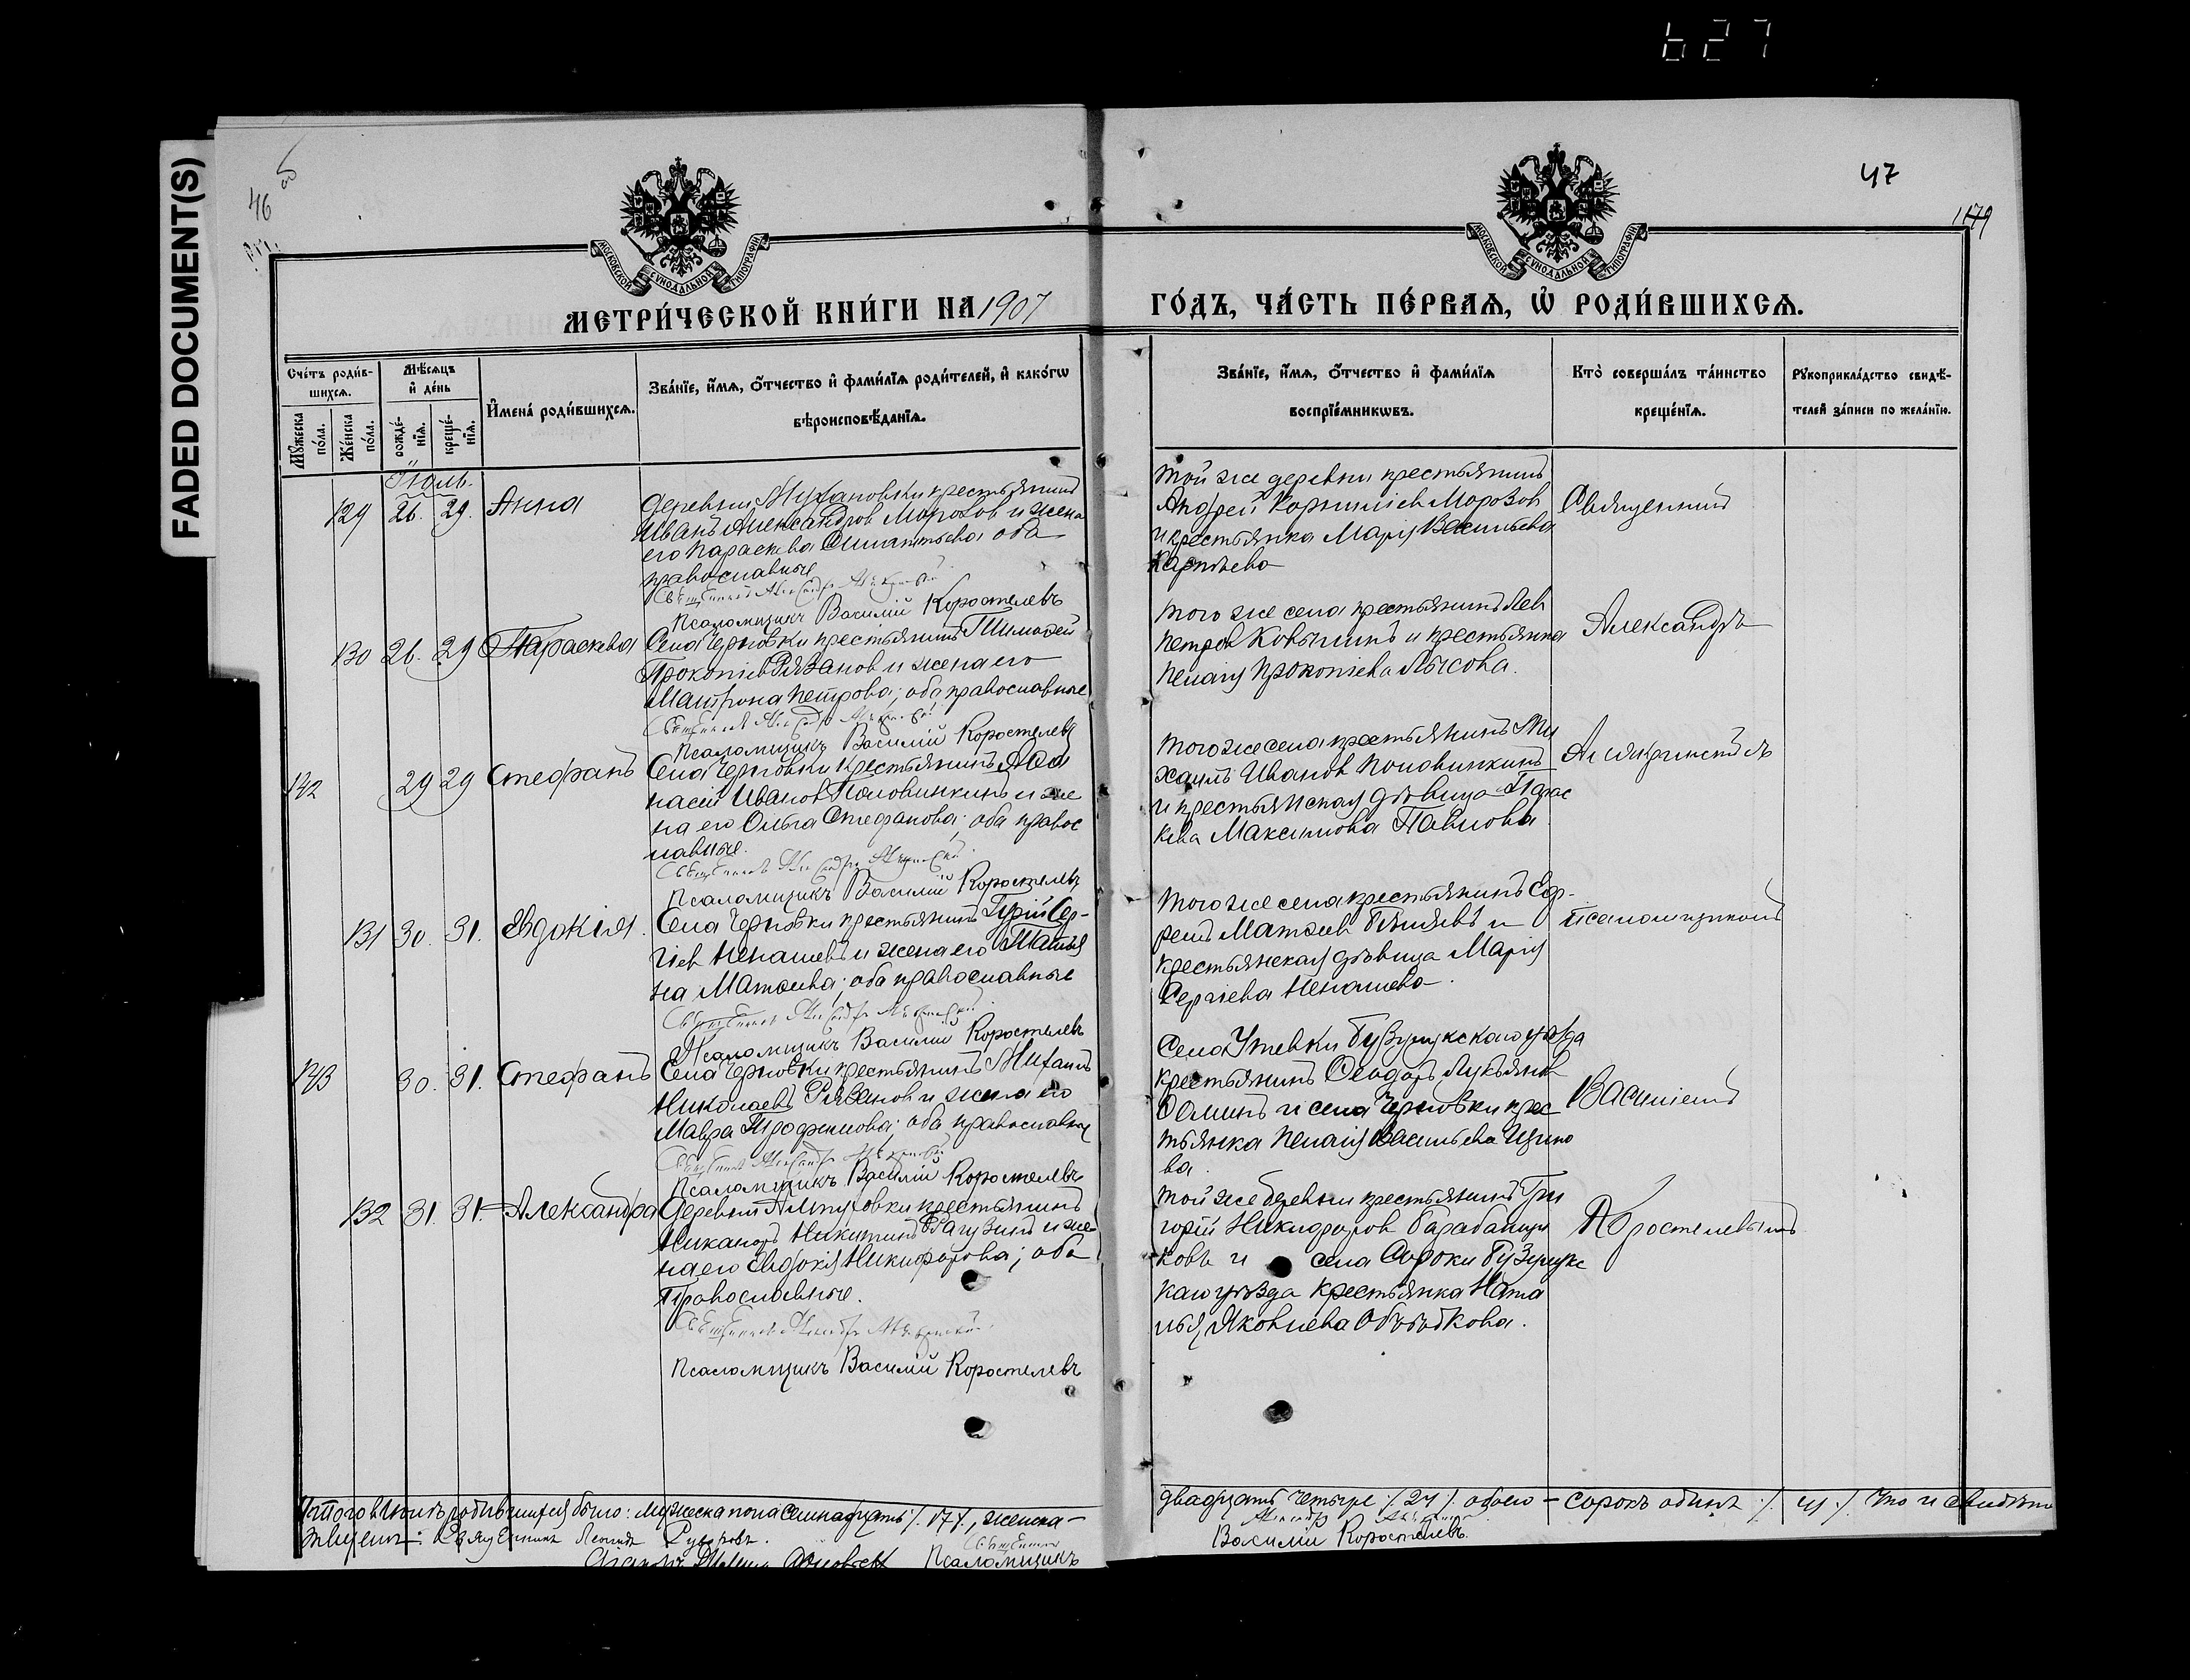 627
FADED DOCUMENT(S)
46 об
47
1179
МОСКОВСКОЙ СУНОДАЛЬНОЙ ТИПОГРАФІИ
МОСКОВСКОЙ СУНОДАЛЬНОЙ ТИПОГРАФІИ
МЕТРИ́ЧЕСКОЙ КНИ́ГИ НА 1907
ГО́ДЪ, ЧА́СТЬ ПЕ́РВАѦ, Ѡ҆ РОДИ́ВШИХСѦ.
Сче́тъ роди́в-
шихсѧ.
Мѣ́сѧцъ
и҆ де́нь
Мꙋ́жеска
по́ла.
Же́нска
по́ла.
рожде́-
нїѧ.
креще́-
нїѧ.
И҆мена̀ роди́вшихсѧ.
Зва́нїе, и҆́мѧ, ѻ҆́тчество и҆ фами́лїѧ роди́телей, и҆ како́гѡ
вѣроисповѣ́данїѧ.
Зва́нїе, и҆́мѧ, ѻ҆́тчество и҆ фами́лїѧ
воспрїе́мникѡвъ.
Кто̀ соверша́лъ та́инство
креще́нїѧ.
Рꙋкоприкла́дство свидѣ́-
телей за́писи по жела́нїю.
Іюль.
129 26. 29. Анна
деревни Мухановки крестьянинъ
Иванъ Александров Морозов и жена
его Параскева оба
православные
Псаломщикъ Василій Коростелевъ
той же деревни крестьянинъ
Андрей Корнилiев Морозов
и крестьянка Марiя Васильева
Карпѣева
Священникъ
130 26. 29 Параскева
Села Черновки крестьянинъ Тимофей
Прокопiев Рязанов и жена его
Матрона Петрова; оба православные
Псаломщикъ Василій Коростелевъ
того же села крестьянинъ Лев
Петров и крестьянка
Пелагiя Прокопiева Лысова.
Александръ
142 29 29 Стефанъ
Села Черновки крестьянинъ Афа
насiй Иванов Половинкинъ и же
на его Ольга Стефанова; оба правос
лавные.
Псаломщикъ Василій Коростелевъ
того же села крестьянинъ Ми
хаилъ Иванов Половинкинъ
и крестьянская дѣвица Парас
кева Максимова Павлова
131 30. 31. Евдокiя.
Села Черновки крестьянинъ Гурiй Сер-
гiев Ненашевъ и жена его Татья
на Матѳеева; оба православные
Псаломщикъ Василій Коростелевъ
того же села крестьянинъ Еф-
ремъ Матѳеев и
крестьянская дѣвица Марiя
Сергiева Ненашева.
псаломщикомъ
143 30. 31. Стефанъ
Села Черновки крестьянинъ Михаилъ
Николаевъ Рязанов и жена его
Мавра Трофимова; оба православные
Псаломщикъ Василій Коростелевъ
Села Утевки Бузулукскаго уѣзда
крестьянинъ Ѳеодоръ Лукьянов
и села Черновки крес
тьянка Пелагiя Васильева
ва.
Василiемъ
132 31. 31. Александра
Деревни крестьянинъ
Никаноръ Никитинъ и же
на его Евдокiя Никифорова; оба
Православные.
Псаломщикъ Василій Коростелевъ
той же деревни крестьянинъ Гри
горiй Никифоров Барабанщи
ковъ и села Сороки Бузулукс
каго уѣзда крестьянка Ната
лья Яковлева Объѣдкова.
Коростелевымъ
Итого в Iюлѣ родившихся было: мужеска пола семнадцать /.17/., женска –
двадцать четыре /.24/. обоего – сорокъ одинъ /. 41./. Что и свидѣте
Священникъ
Псаломщикъ
Василій Коростелевъ.